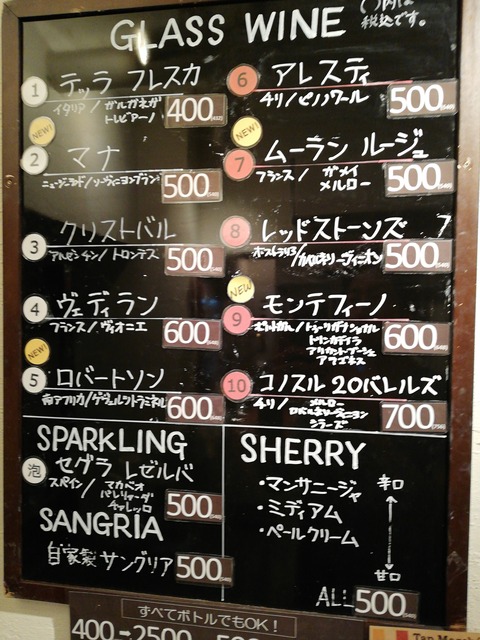 GLASS WINE
税込です。
1 テッラ フレスカ
イタリア/ガルガネガ
トレビアーノ
400
NEW!
2 マナ
ニュージーランド/ソーヴィニヨンブラン
500
3 クリストバル
アルゼンチン/トロンテス
500
4 ヴェディラン
フランス/ヴィオニエ
600
NEW!
5 ロバートソン
南アフリカ/ゲヴュルツトラミネル
600
6 アレスティ
チリ/ピノノワール
500
NEW!
7 ムーラン ルージュ
フランス/ガメイ
メルロー
500
8 レッドストーンズ
500
NEW
9 モンテフィーノ
トゥーリガナショナル
トリンカデイラ
600
10 コノスル 20バレルズ
チリ/メルロー
カベルネソーヴィニヨン
シラーズ
700
SPARKLING
泡 セグラ レゼルバ
スペイン/マカベオ
パレリャーダ
チャレッロ
500
SANGRIA
自家製 サングリア 500
SHERRY
・マンサニージャ 辛口
・ミディアム
・ペールクリーム
甘口
ALL 500
すべてボトルでもOK!